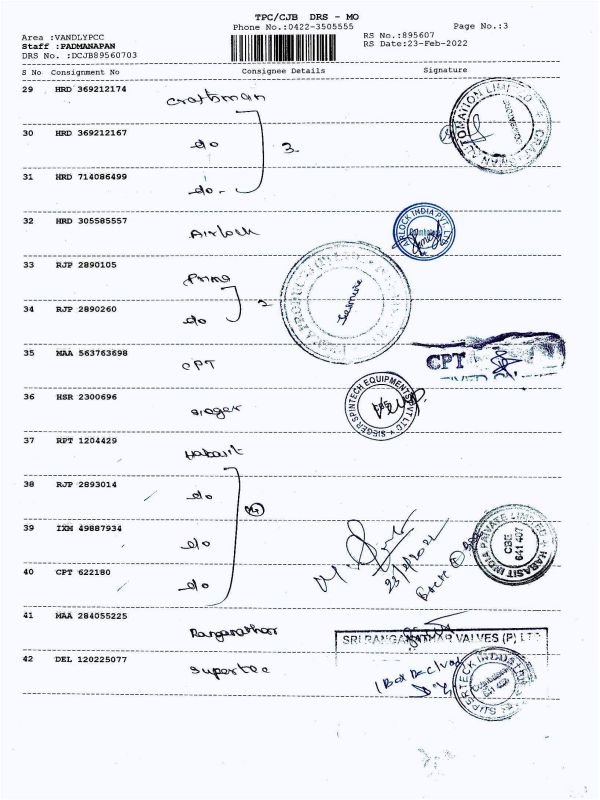 TPC/CJB DRS - MO
Phone No.:0422-3505555
Page No.:3
Area :VANDLYPCC
RS No.:895607
Staff :PADMANAPAN
RS Date:23-Feb-2022
DRS No. :DCJB89560703
S No Consignment No Consignee Details Signature
29 HRD 369212174 Craftsman
30 HRD 369212167 do 3
31 HRD 714086499 do
32 HRD 305585557 Airlock
AIRLOCK INDIA PVT. LTD
33 RJP 2890105 Prime
34 RJP 2890260 do 2
35 MAA 563763698 CPT
CPT
36 HSR 2300696 Sieger
SIEGER SPINTECH EQUIPMENTS PVT LTD
37 RPT 1204429 Habasit
38 RJP 2893014 do
39 IXM 49887934 do
40 CPT 622180 do
23/2/2022
HABASIT INDIA PRIVATE LIMITED
CBE
641 407
41 MAA 284055225 Ranganathar
SRI RANGANATHAR VALVES (P) LTD
42 DEL 120225077 Supertec